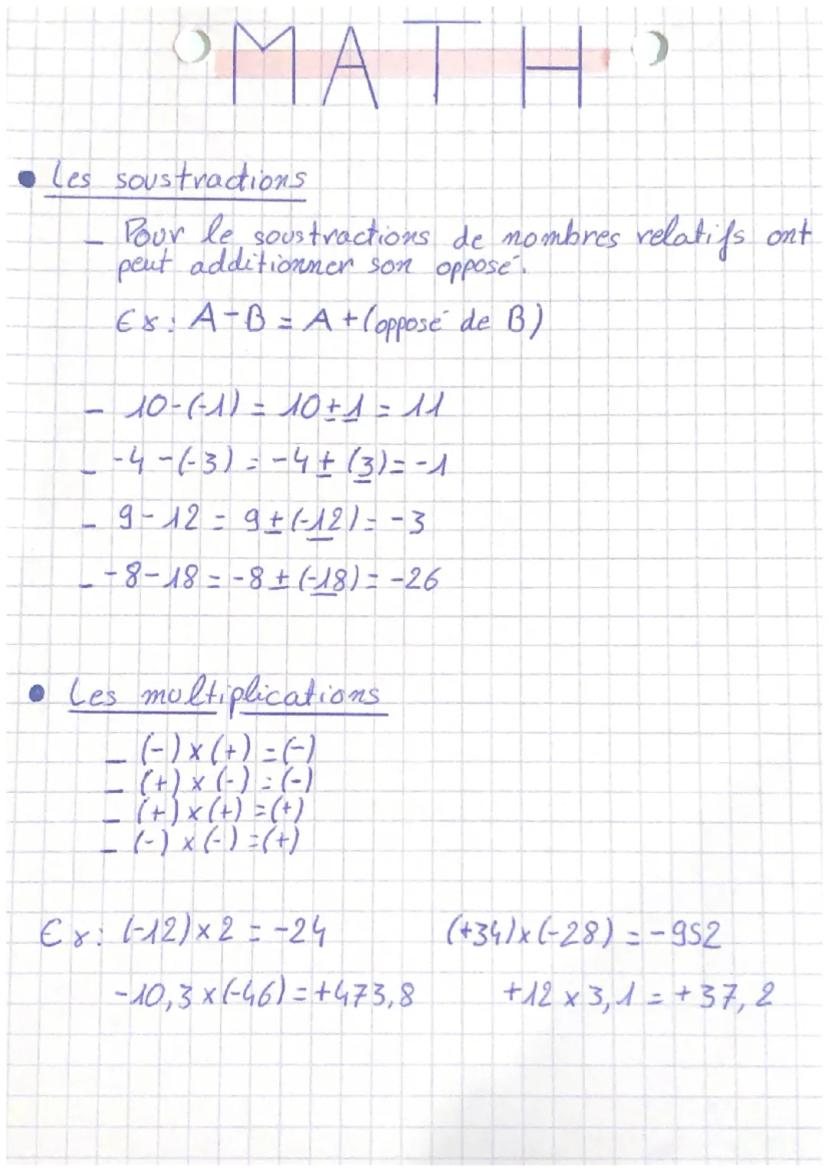 MATH
• Les soustractions
- Pour le soustractions de nombres relatifs ont
peut additionner son opposé.
Ex : A-B = A + (opposé de B)
- 10-(-1) = 10+1 = 11
- -4-(-3) = -4 + (3) = -1
- 9-12 = 9+(-12) = -3
- -8-18 = -8 + (-18) = -26
• Les multiplications
- (-) x (+) = (-)
- (+) x (-) = (-)
- (+) x (+) = (+)
- (-) x (-) = (+)
Ex : (-12) x 2 = -24 (+34) x (-28) = -952
-10,3 x (-46) = +473,8 +12 x 3,1 = +37,2